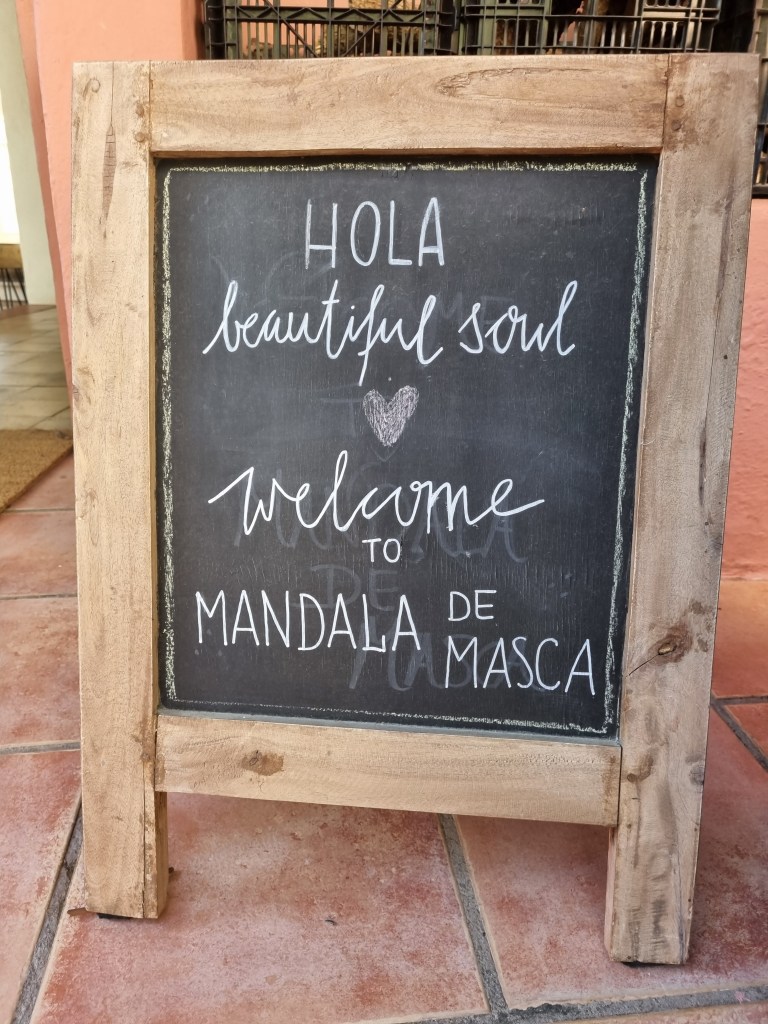 HOLA
beautiful soul
welcome
TO
MANDALA DE
MASCA